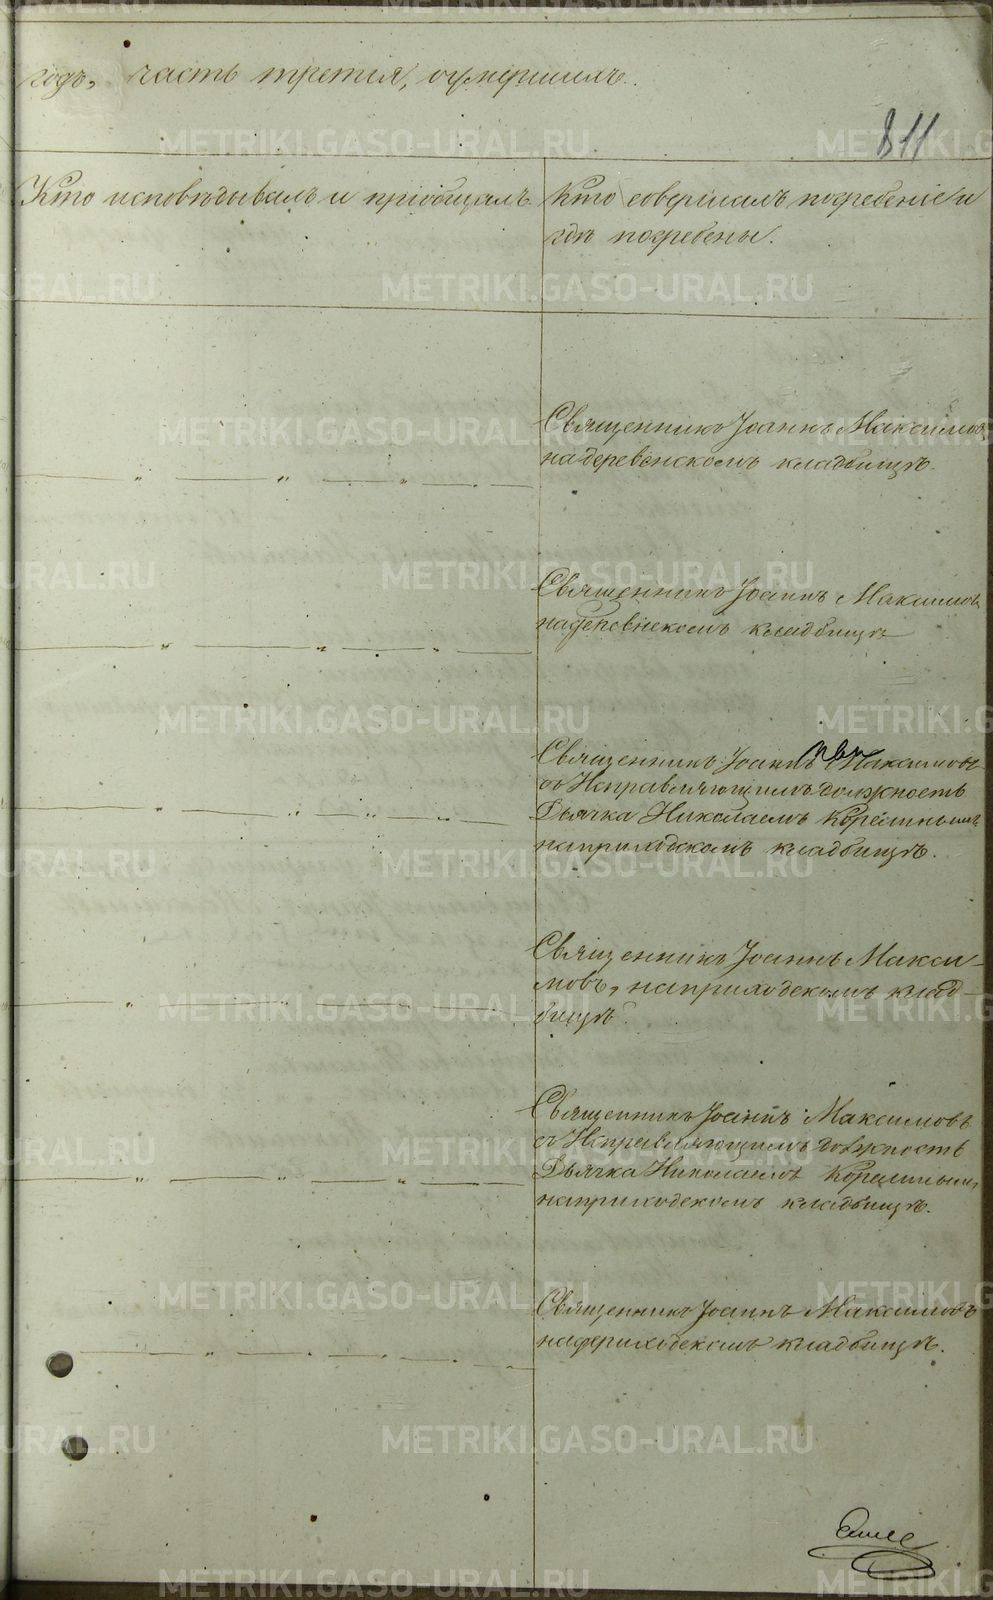 годъ, часть третія, оумершихъ.
811
Кто исповѣдывалъ и пріобщалъ.
Кто совершалъ погребеніе и
гдѣ погребены.
Священникъ Іоаннъ Максимовъ
на деревенскомъ кладбищѣ.
Священникъ Іоаннъ Максимовъ
на деревнскомъ кладбищѣ
Священникъ Іоаннъ Максимовъ
съ Исправляющимъ должность
Дьячка Николаемъ
на приходскомъ кладбищѣ.
Священникъ Іоаннъ Макси-
мовъ, на приходскомъ клад-
бищѣ.
Священникъ Іоаннъ Максимовъ
съ Исправляющимъ должность
Дьячка Николаемъ
на приходскомъ кладбищѣ.
Священникъ Іоаннъ Максимовъ
на приходскомъ кладбищѣ.
METRIKI.GASO-URAL.RU